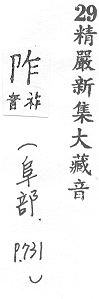 29精嚴新集大藏音
阼
音祚
(阜部. P.731)